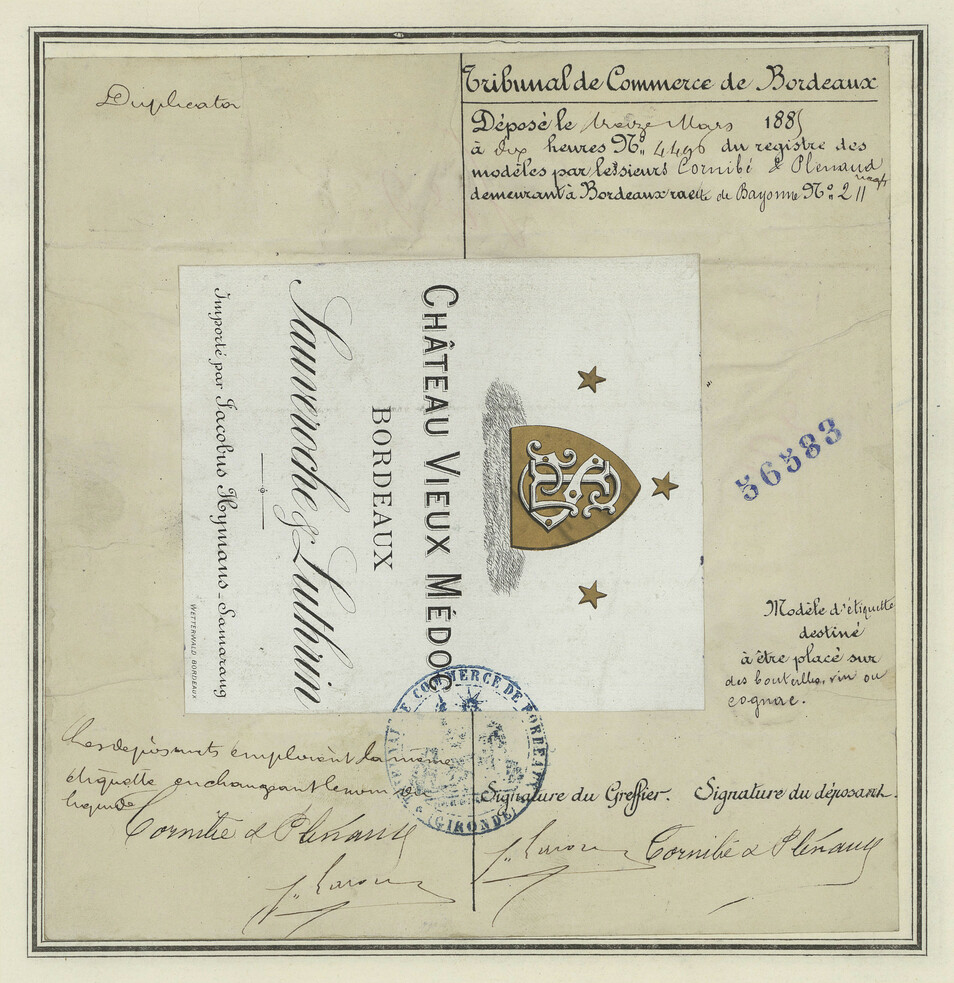 Duplicata
Tribunal de Commerce de Bordeaux
Déposé le treize Mars 1885
à dix heures N° 4496 du registre des
modèles par les sieurs Cornibé & Plenaud
demeurant à Bordeaux route de Bayonne N° 211
CHÂTEAU VIEUX MÉDOC
BORDEAUX
Sauveroche & Luthrin
Importé par Jacobus Hymans - Samarang
WETTERWALD BORDEAUX
56583
Modèle d'étiquette
destiné
à être placé sur
des bouteilles, vin ou
cognac.
TRIBUNAL DE COMMERCE DE BORDEAUX
(GIRONDE)
Les déposants emploieront la même
étiquette en changeant le nom de
Signature du Greffier. Signature du déposant.
Cornibé & Plenaud
Cornibé & Plenaud